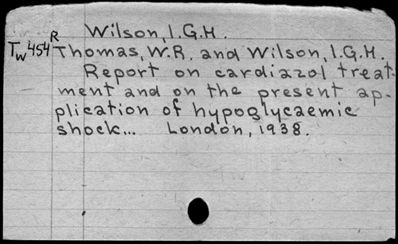 Wilson, I.G.H.
R
Tw454 Thomas, W.R. and Wilson, I.G.H.
Report on cardiazol treat-
ment and on the present ap-
plication of hypoglycaemic
shock... London, 1938.